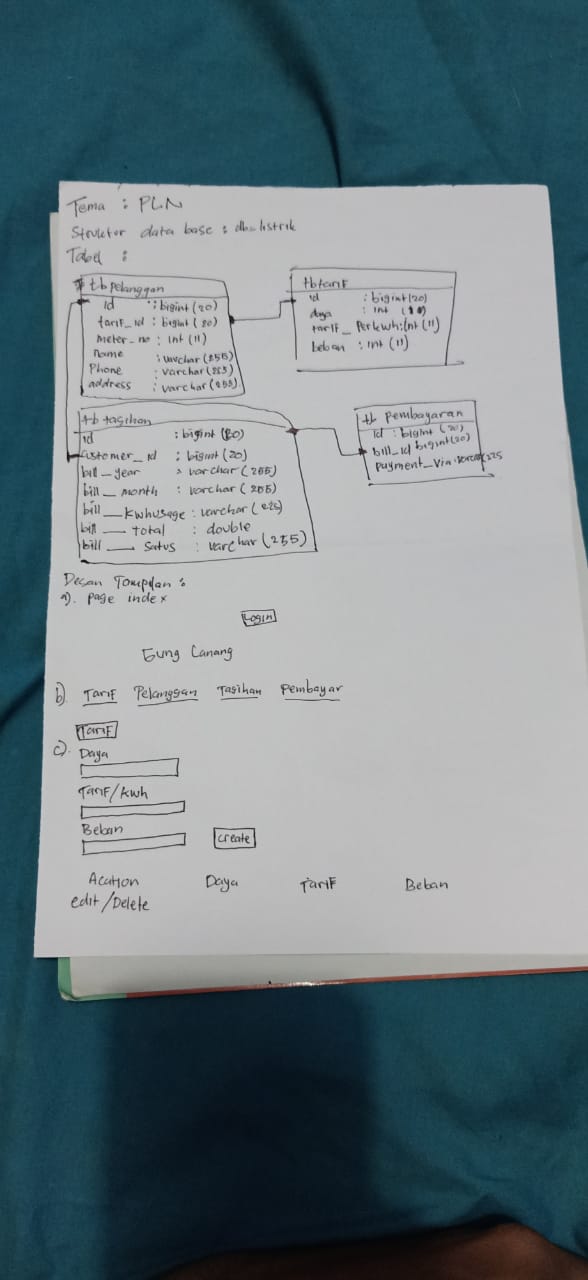 Tema : PLN
Struktur data base : db_listrik
Tabel :
tb pelanggan
id : bigint (20)
tarif_id : bigint (20)
meter_no : int (11)
name : varchar (255)
Phone : varchar (255)
address : varchar (255)
tb tarif
id : bigint (20)
daya : int (10)
tarif_Perkwh : int (11)
beban : int (11)
tb tagihan
id : bigint (20)
customer_id : bigint (20)
bill_year : varchar (255)
bill_month : varchar (255)
bill_kwhusage : varchar (225)
bill_total : double
bill_satus : varchar (255)
tb pembayaran
id : bigint (20)
bill_id bigint (20)
payment_via :
Desan Tampilan :
a). page index
Login
Gung Canang
b) Tarif Pelanggan Tagihan Pembayar
Tarif
c). Daya
Tarif/kwh
Beban
Create
Acation Daya Tarif Beban
edit/Delete